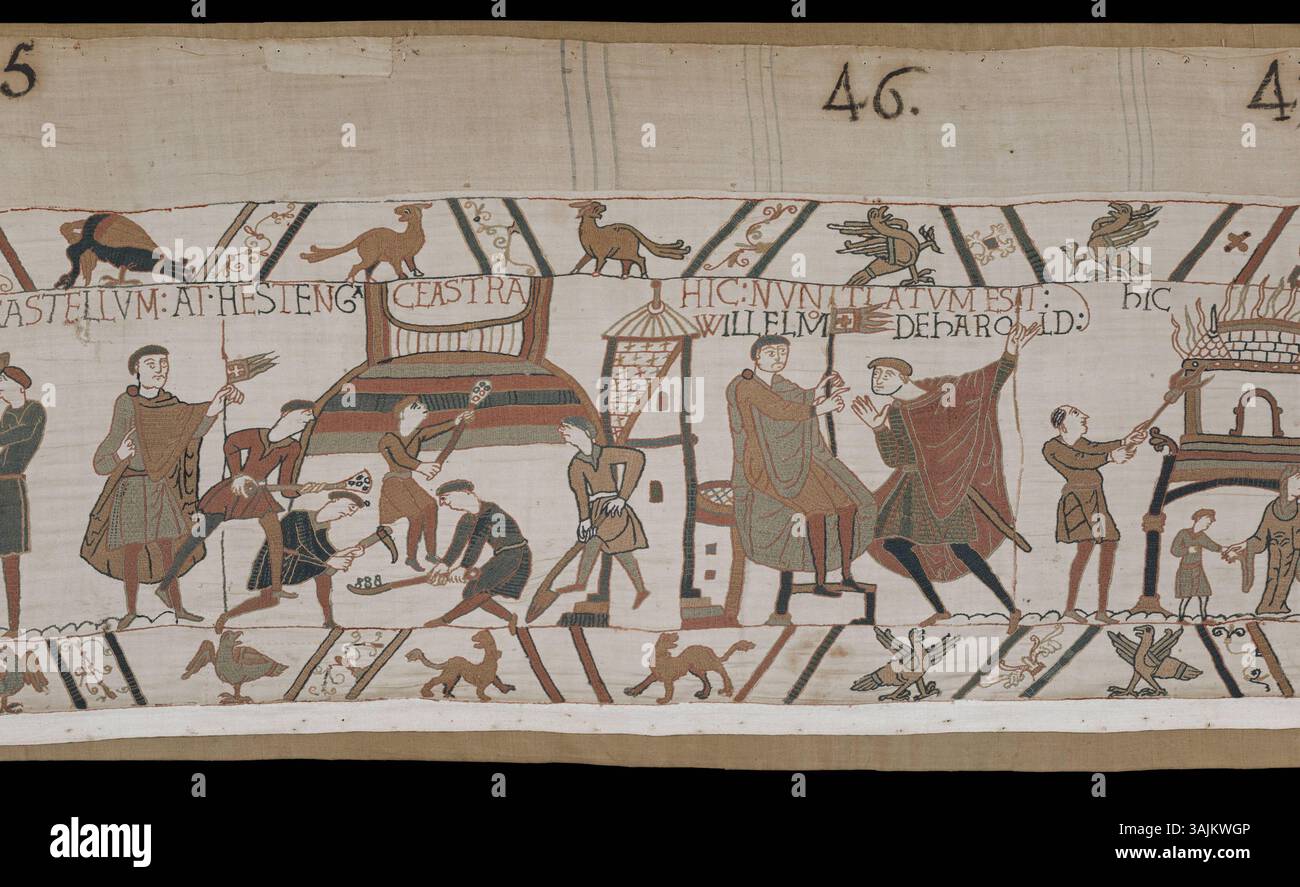 5
46.
4
CASTELLVM: AT: HESTENGA CEASTRA
HIC: NVNTIATVM EST:
WILLELMO DE hAROLD:
hIC
alamy
Image ID: 3AJKWGP
www.alamy.com